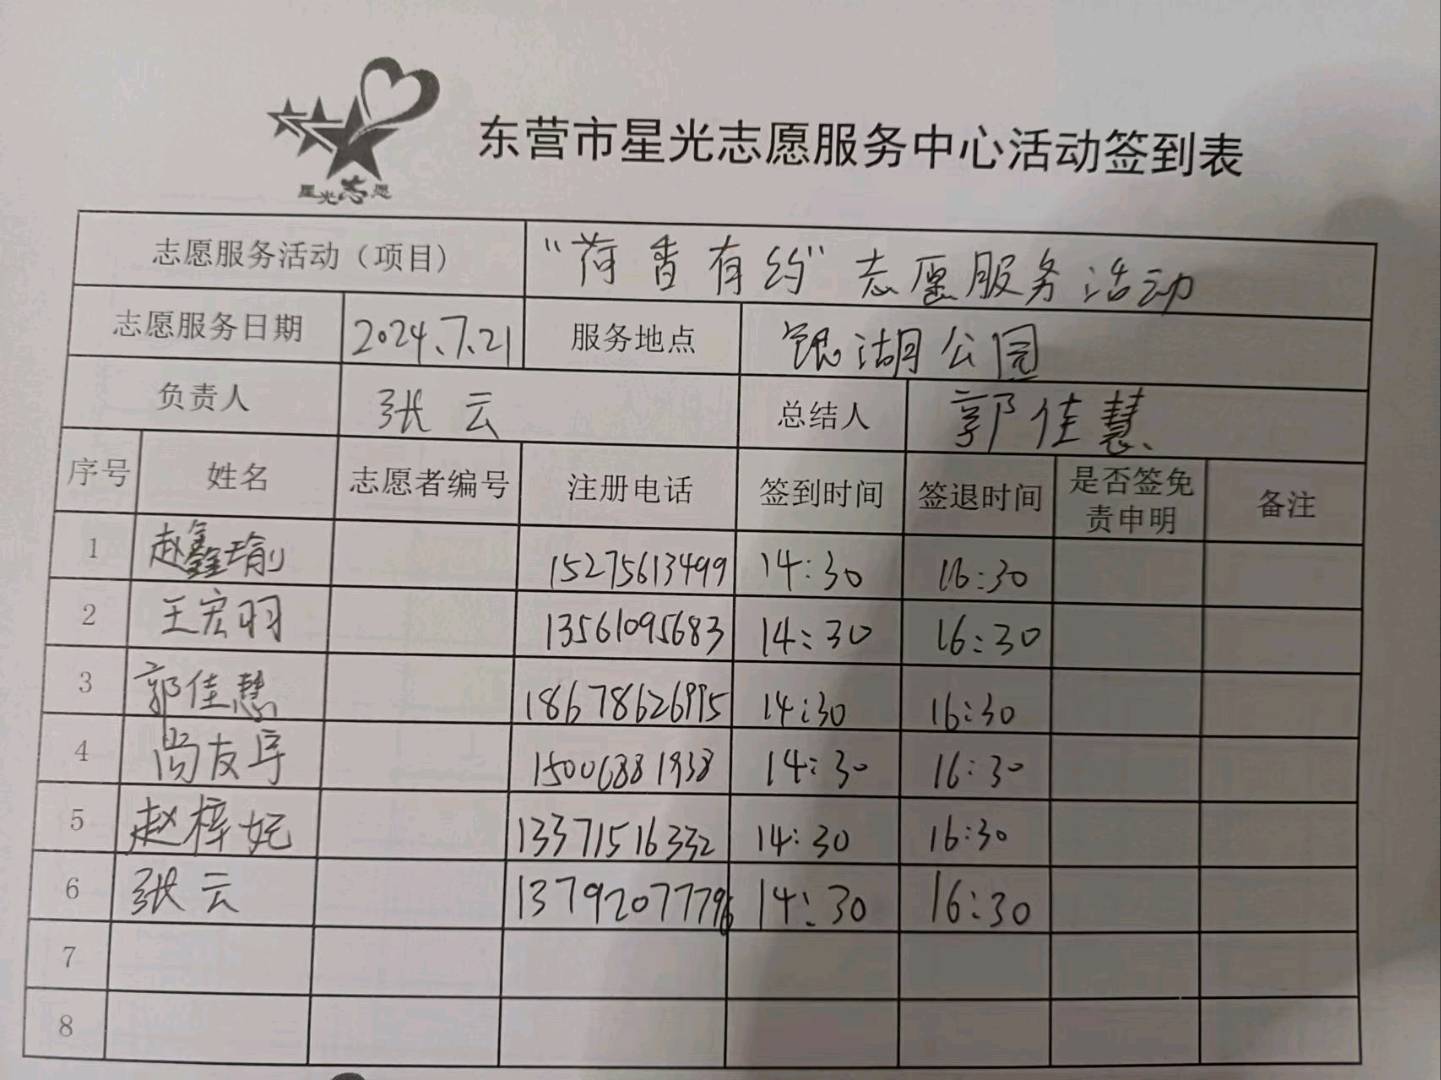 星光志愿
东营市星光志愿服务中心活动签到表
志愿服务活动（项目） “荷香有约”志愿服务活动
志愿服务日期 2024.7.21 服务地点 银湖公园
负责人 张云 总结人 郭佳慧
序号 姓名 志愿者编号 注册电话 签到时间 签退时间 是否签免责申明 备注
1 赵鑫瑜 15275613499 14:30 16:30
2 王宏羽 13561095683 14:30 16:30
3 郭佳慧 18678626995 14:30 16:30
4 尚友宇 15006881938 14:30 16:30
5 赵梓妃 13371516332 14:30 16:30
6 张云 13792077796 14:30 16:30
7
8